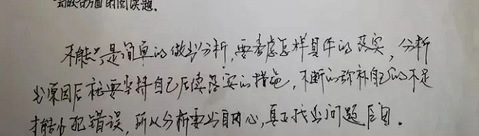 不能只是简单的做出分析，要考虑怎样具体的落实，分析
出原因后 要坚持自己后续落实的措施，不断的弥补自己的不足
才能少犯错误，所以分析要出自内心，真正找出问题